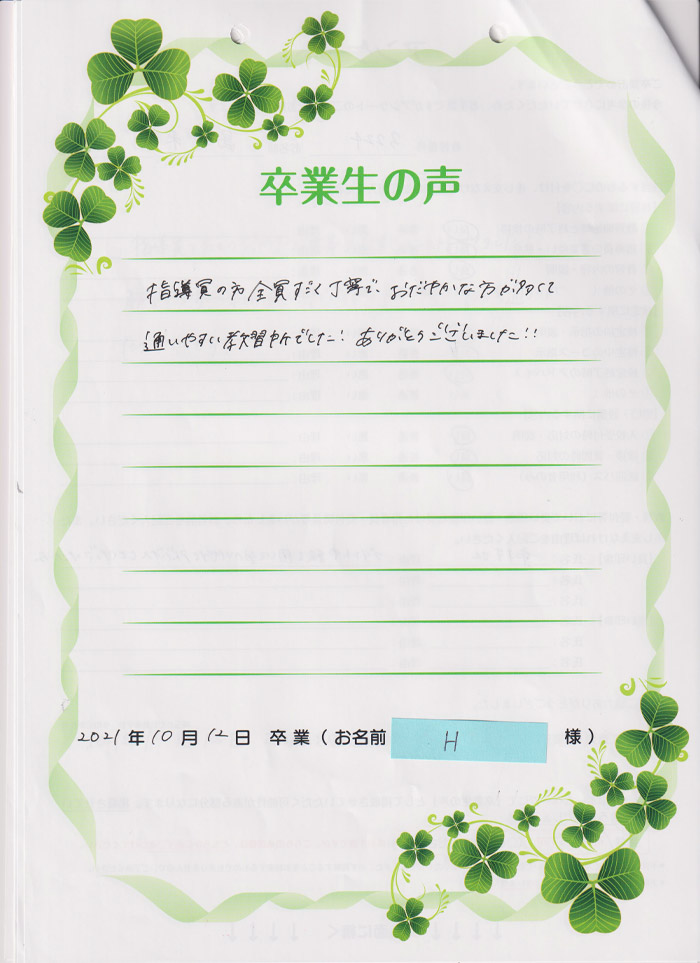 卒業生の声
指導員の方全員すごく丁寧で、おだやかな方が多くて
通いやすい教習所でした! ありがとうございました!!
2021年10月12日 卒業(お名前 H 様)